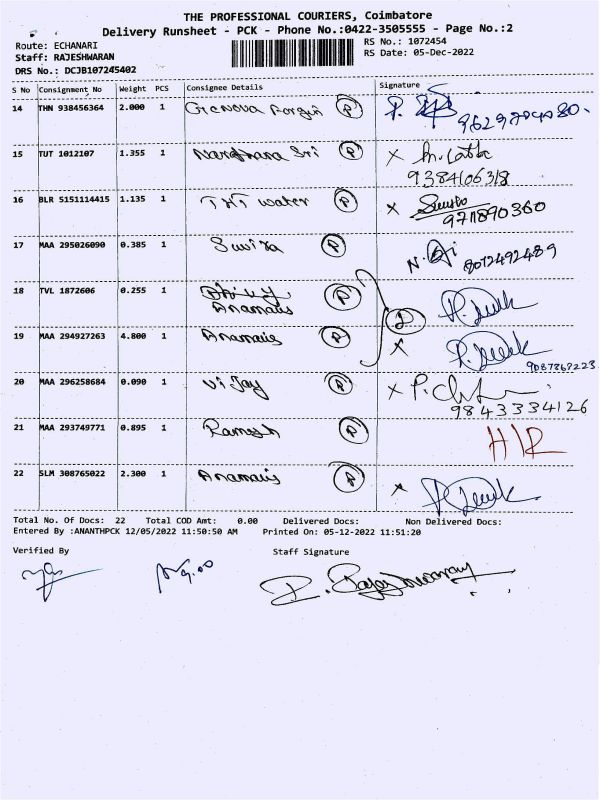 THE PROFESSIONAL COURIERS, Coimbatore
Delivery Runsheet - PCK - Phone No.:0422-3505555 - Page No.:2
Route: ECHANARI
RS No.: 1072454
Staff: RAJESHWARAN
RS Date: 05-Dec-2022
DRS No.: DCJB107245402
S No Consignment No Weight PCS Consignee Details Signature
14 THN 938456364 2.000 1 P
15 TUT 1012107 1.355 1 Sri P X
9384106318
16 BLR 5151114415 1.135 1 water P X
971890360
17 MAA 295026090 0.385 1 P N.
8072492489
18 TVL 1872606 0.255 1 P
19 MAA 294927263 4.800 1 P X
20 MAA 296258684 0.090 1 Vijay P X
9843334126
21 MAA 293749771 0.895 1 Ramesh P H/R
22 SLM 308765022 2.300 1 P X
Total No. Of Docs: 22 Total COD Amt: 0.00 Delivered Docs: Non Delivered Docs:
Entered By :ANANTHPCK 12/05/2022 11:50:50 AM Printed On: 05-12-2022 11:51:20
Verified By Staff Signature